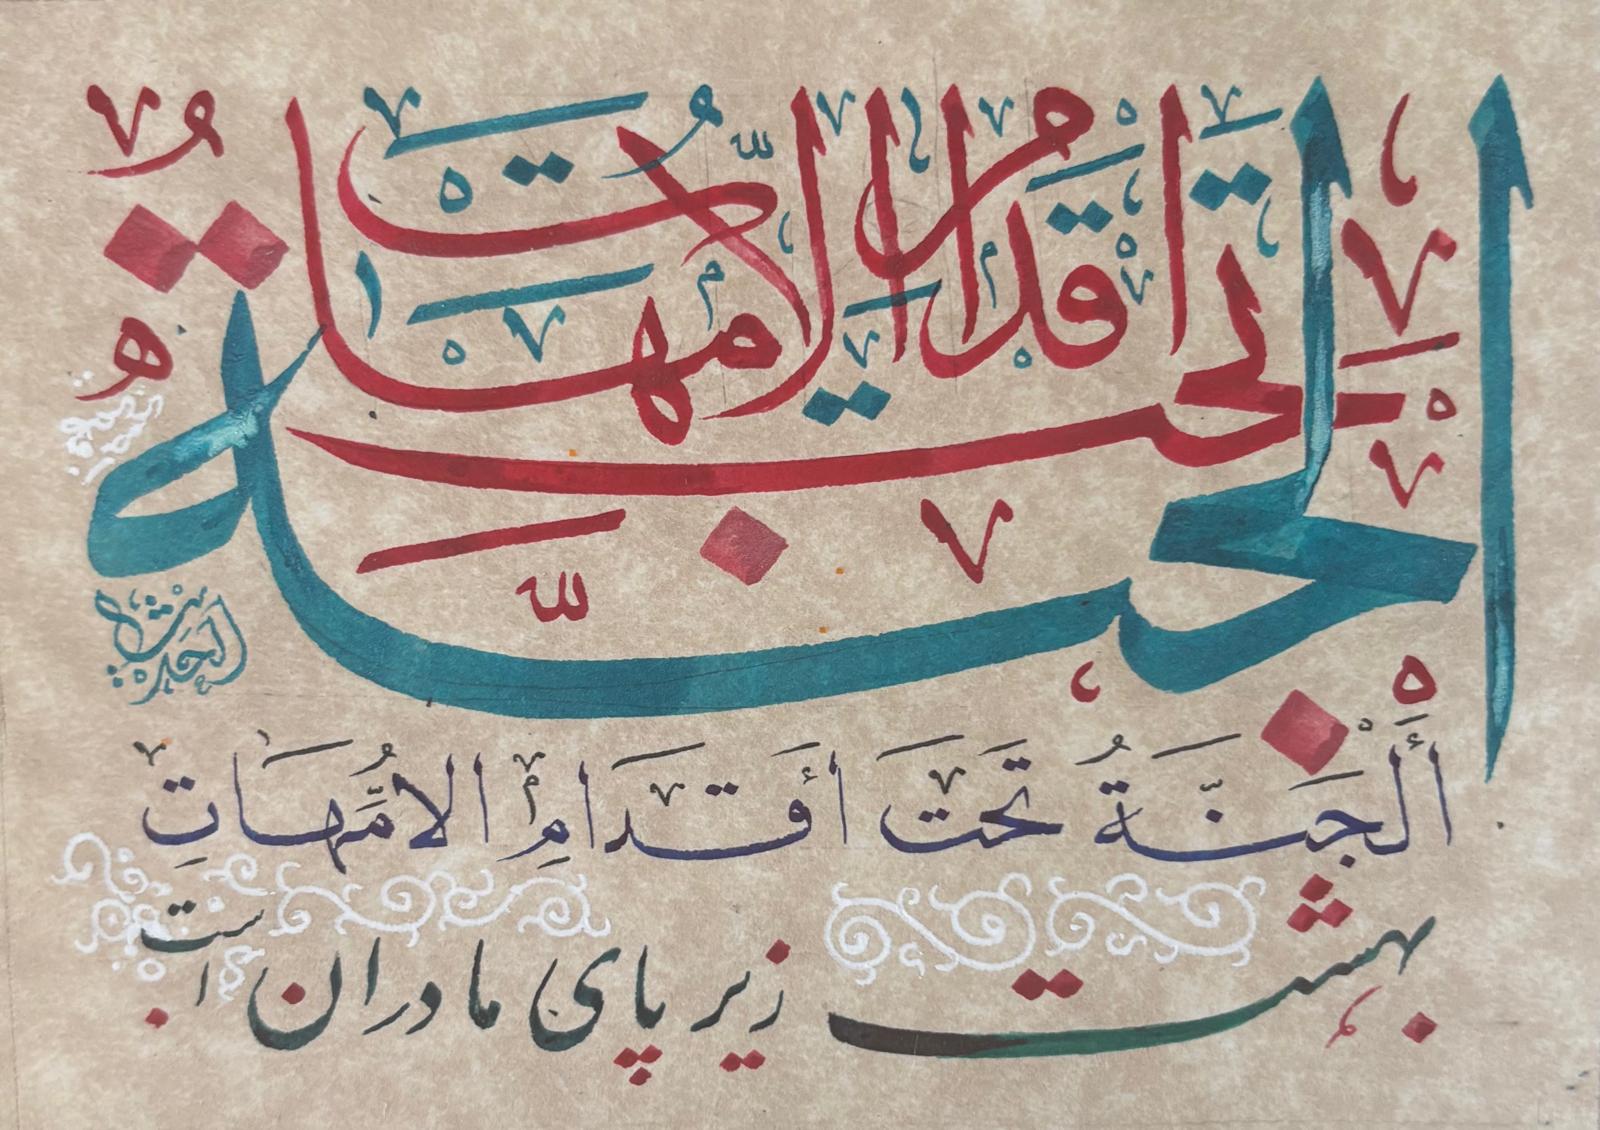 الجَنَّةُ تَحتَ أَقدَامِ الأُمَّهَاتِ
أَلْجَنَّةُ تَحتَ أَقدَامِ الاُمَّهَاتِ
بهشت زیر پای مادران است